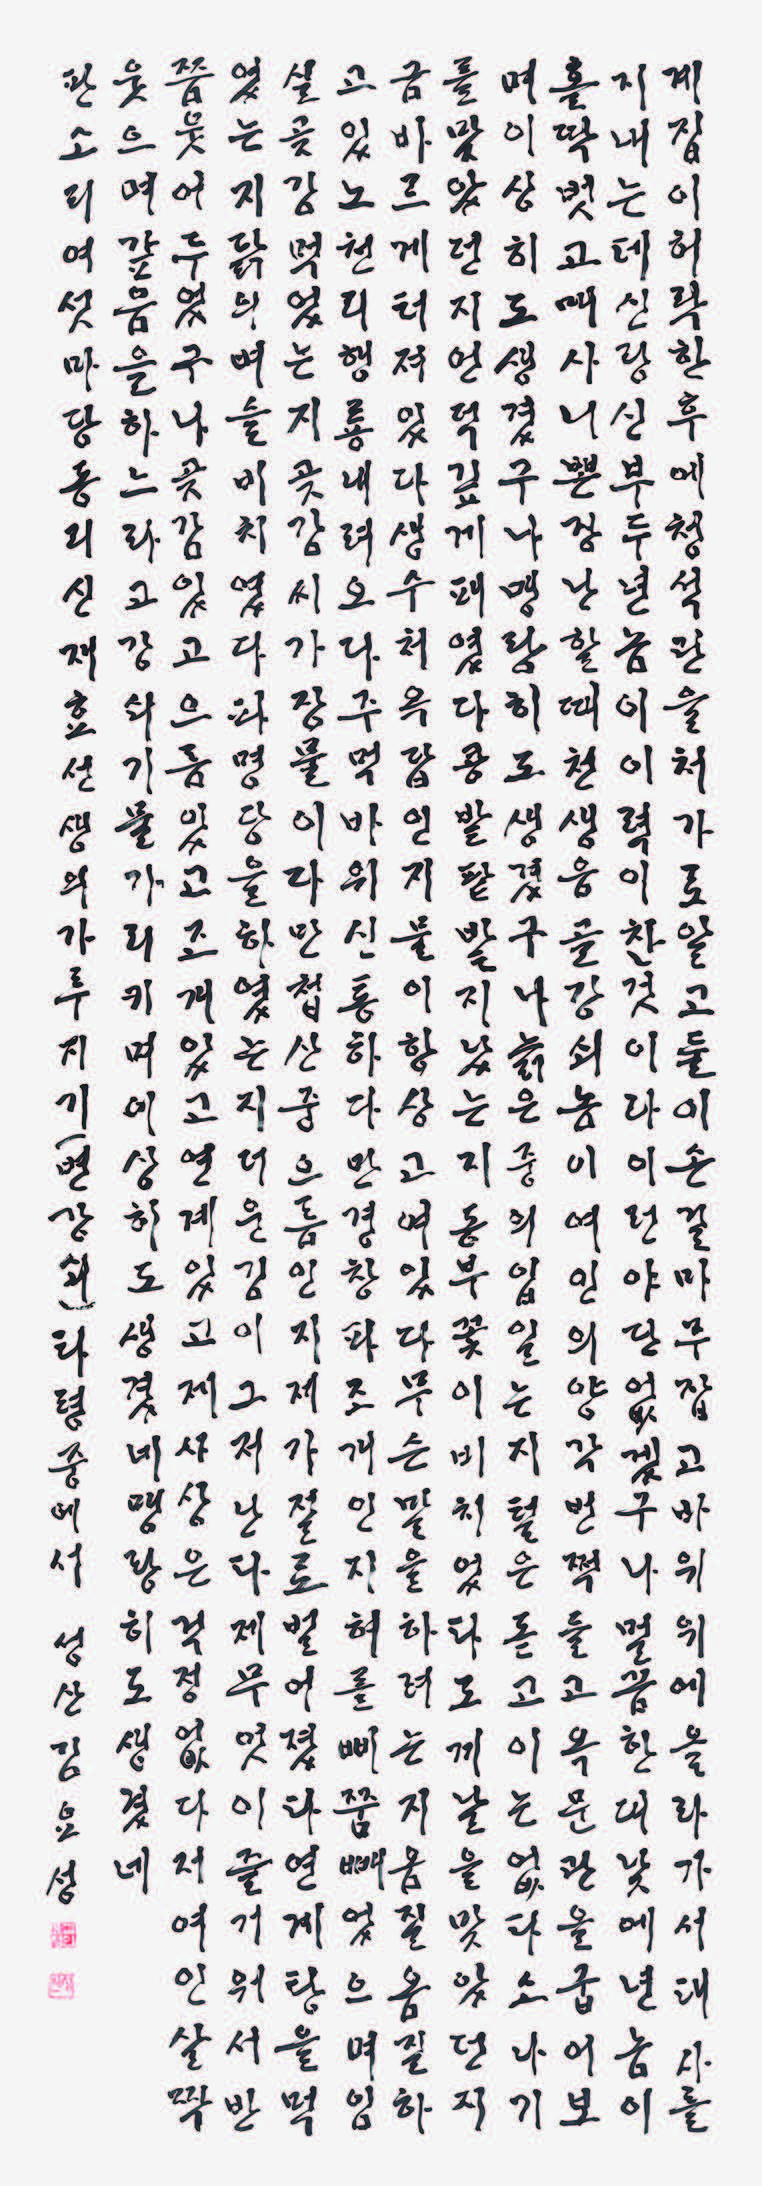 계집이허락한후에청석관을처가로알고둘이손길마주잡고바위위에올라가서대사를
지내는데신랑신부두년놈이이력이찬것이라이런야단없겠구나멀끔한대낮에년놈이
홀딱벗고매사니뽄장난할때천생음골강쇠놈이여인의양각번쩍들고옥문관을굽어보
며이상히도생겼구나맹랑히도생겼구나늙은중의입일는지털은돋고이는없다소나기
를맞았던지언덕깊게패였다콩밭팥밭지났는지돔부꽃이비치었다도끼날을맞았던지
금바르게터져있다생수처옥답인지물이항상고여있다무슨말을하려는지옴질옴질하
고있노천리행룡내려오다주먹바위신통하다만경창파조개인지혀를삐쭘빼었으며임
실곶감먹었는지곶감씨가장물이다만첩산중으름인지제가절로벌어졌다연계탕을먹
었는지닭의벼슬비치였다파명당을하였는지더운김이그저난다제무엇이즐거워서반
쯤웃어두었구나곶감있고으름있고조개있고연계있고제사상은걱정없다저여인살짝
웃으며갚음을하느라고강쇠기물가리키며이상히도생겼네맹랑히도생겼네
판소리여섯마당동리신재효선생의가루지기(변강쇠)타령중에서 성산김요성